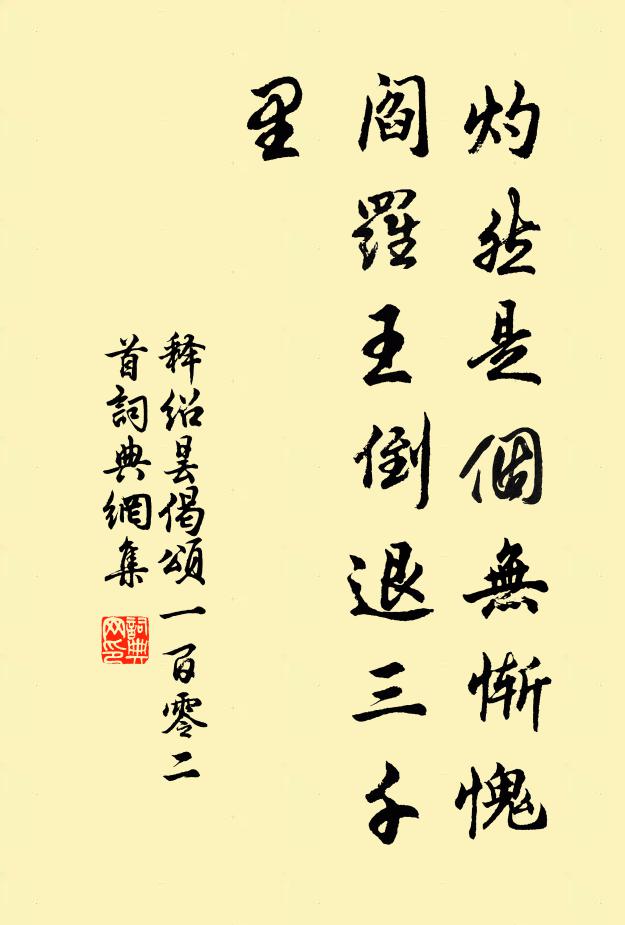 灼然是個無慚愧
閻羅王倒退三千
里
释紹曇偈頌一百零二
首詞典網集
詞典
网印